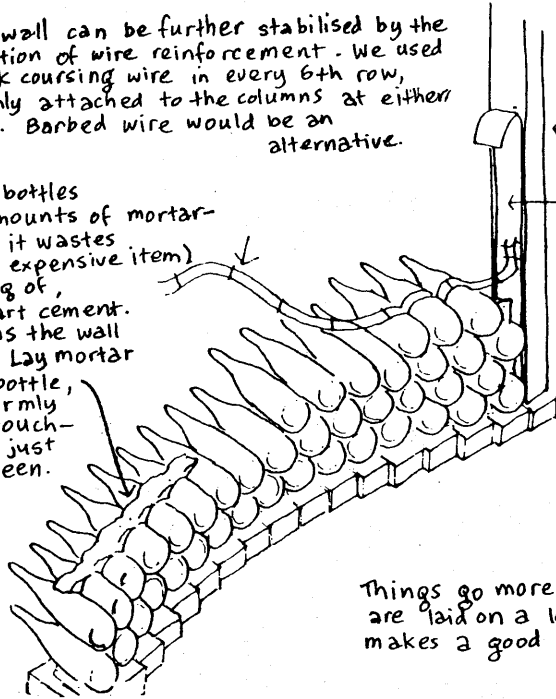 wall can be further stabilised by the
tion of wire reinforcement. We used
k coursing wire in every 6th row,
ly attached to the columns at either
. Barbed wire would be an
alternative.
bottles
mounts of mortar-
it wastes
expensive item)
g of,
art cement.
s the wall
Lay mortar
bottle,
rmly
ouch-
just
een.
Things go more
are laid on a
makes a good